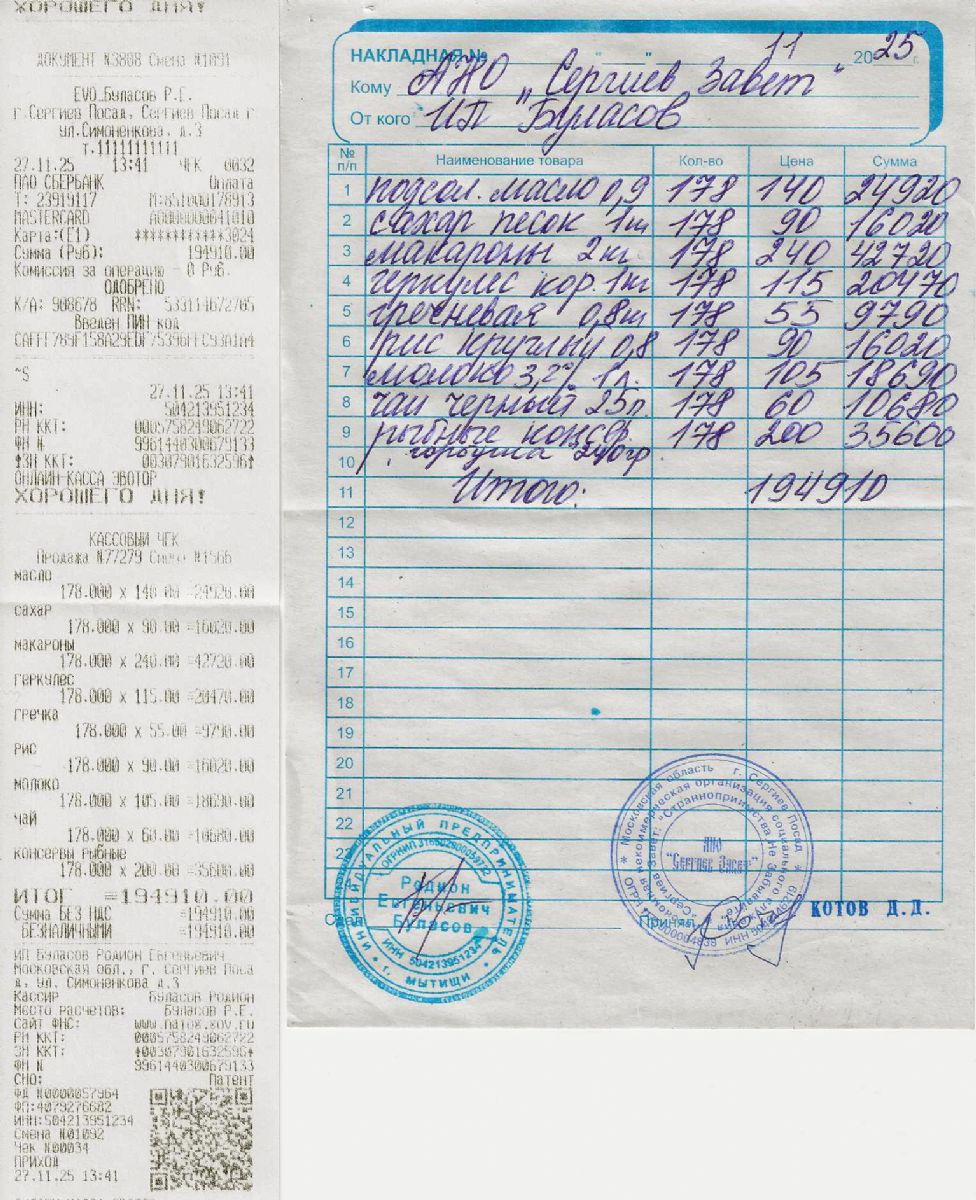 ХОРОШЕГО ДНЯ!
ДОКУМЕНТ N3808 Смена N1091
EVO_Буласов Р.Е.
г.Сергиев Посад, Сергиев Посад г
ул.Симоненкова, д.3
т.11111111111
27.11.25 13:41 ЧЕК 0032
ПАО СБЕРБАНК Оплата
Т: 23919117 М:851000178913
MASTERCARD A0000000041010
Карта:(E1) ************3024
Сумма (Руб): 194910.00
Комиссия за операцию - 0 Руб.
ОДОБРЕНО
К/А: 908678 RRN: 533114672765
Введен ПИН код
~S
27.11.25 13:41
ИНН: 504213951234
РН ККТ: 0005758249062722
ФН N 9961440300679133
ЗН ККТ: 00307901632596
ОНЛАЙН-КАССА ЭВОТОР
ХОРОШЕГО ДНЯ!
КАССОВЫЙ ЧЕК
Продажа N77279 Смена N1566
масло
178.000 x 140.00 =24920.00
сахар
178.000 x 90.00 =16020.00
макароны
178.000 x 240.00 =42720.00
геркулес
178.000 x 115.00 =20470.00
гречка
178.000 x 55.00 =9790.00
рис
178.000 x 90.00 =16020.00
молоко
178.000 x 105.00 =18690.00
чай
178.000 x 60.00 =10680.00
консервы рыбные
178.000 x 200.00 =35600.00
ИТОГ =194910.00
Сумма БЕЗ НДС =194910.00
БЕЗНАЛИЧНЫМИ =194910.00
ИП Буласов Родион Евгеньевич
Московская обл., Г. Сергиев Поса
д, ул. Симоненкова д.3
Кассир Буласов Родион
Место расчетов: Буласов Р.Е.
Сайт ФНС: www.nalog.gov.ru
РН ККТ: 0005758249062722
ЗН ККТ: 00307901632596
ФН N 9961440300679133
СНО: Патент
ФД N0000057964
ФП:4079276682
ИНН:504213951234
Смена N01092
Чек N00034
ПРИХОД
27.11.25 13:41
НАКЛАДНАЯ № " " 11 2025 г.
Кому АНО "Сергиев Завет"
От кого ИП "Буласов
№ п/п Наименование товара Кол-во Цена Сумма
1 подсол. масло 0,9 178 140 24920
2 сахар песок 1кг 178 90 16020
3 макароны 2 кг 178 240 42720
4 геркулес кор. 1кг 178 115 20470
5 гречневая 0,8кг 178 55 9790
6 рис круглый 0,8 178 90 16020
7 молоко 3,2% 1л. 178 105 18690
8 чай черный 25п. 178 60 10680
9 рыбные консер. 178 200 35600
10 горбуша 240гр
11 Итого: 194910
12
13
14
15
16
17
18
19
20
21
22
Сдал Принял КОТОВ Д.Д.
ИНДИВИДУАЛЬНЫЙ ПРЕДПРИНИМАТЕЛЬ
Родион
Евгеньевич
Буласов
ИНН 504213951234
г. МЫТИЩИ
Московская область г. Сергиев Посад
АНО
"Сергиев Завет"